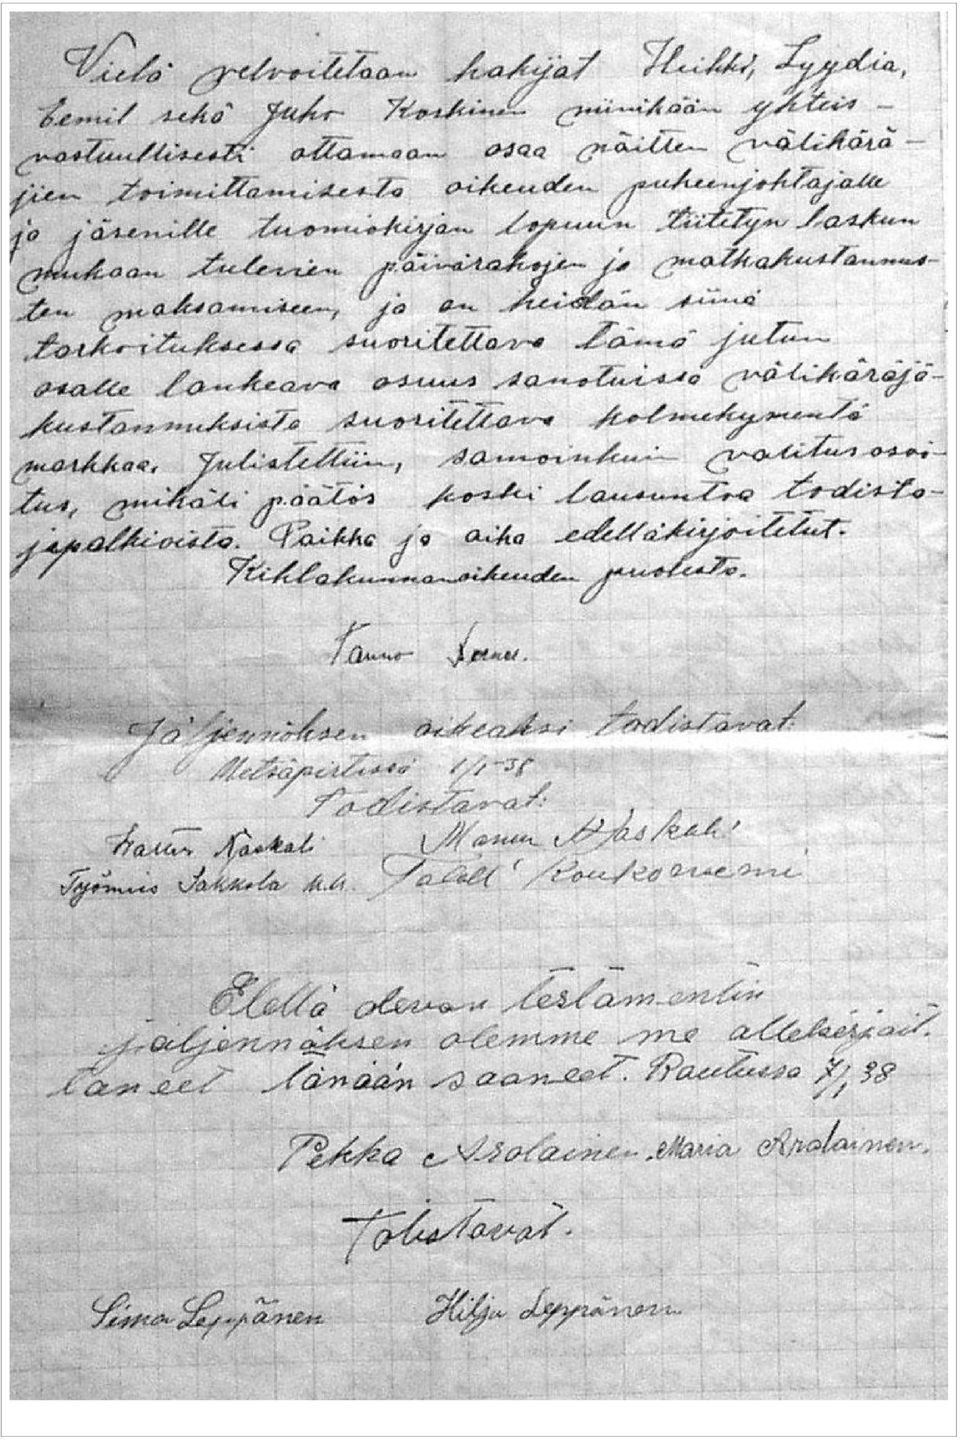 Vielä velvoitetaan hakijat Heikki, Lyydia,
Eemil sekä Juho Koskinen niinikään yhteis-
vastuullisesti ottamaan osaa näitten välikärä-
jien toimittamisesta oikeuden puheenjohtajalle
ja jäsenille tuomiokirjan lopuun liitetyn laskun
mukaan tulevien päivärahojen ja matkakustannus-
ten maksamiseen, ja on heidän siinä
tarkoituksessa suoritettava tämä jutun
osalle lankeava osuus sanotuissa välikäräjä-
kustannuksista suoritettava kolmekymmentä
markkaa. Julistettiin, samoinkuin valitusosoi-
tus, mikäli päätös koski lausuntoa todista-
japalkioista. Paikka ja aika edelläkirjoitetut.
Kihlakunnanoikeuden puolesta.
Tauno
Jäljennöksen oikeaksi todistavat:
Metsäpirtissä 1/1-38
Todistavat:
Naskali Naskali
Työmies Sakkola Taloll. Koukunniemi
Edellä olevan testamentin
jäljennöksen olemme me allekirjoit-
taneet tänään saaneet. Rautussa 7/1 38
Pekka Arolainen. Maria Arolainen.
Todistavat.
Simo Leppänen Hilja Leppänen